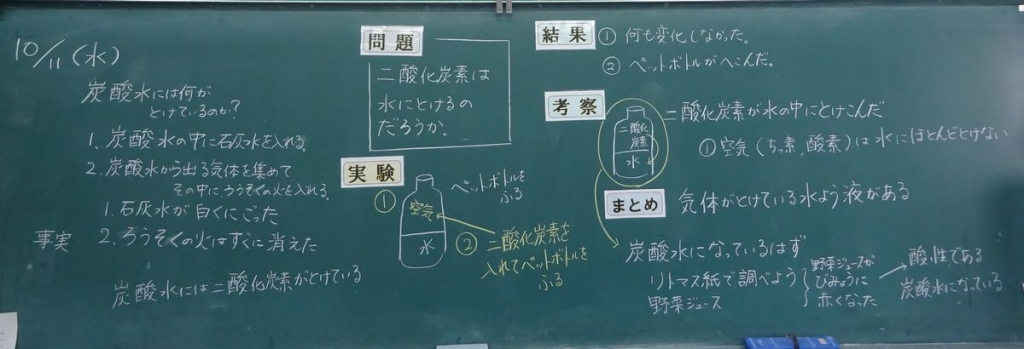 10/11(水)
炭酸水には何が
とけているのか?
1. 炭酸水の中に石灰水を入れる。
2. 炭酸水から出る気体を集めて
その中にろうそくの火を入れる。
1. 石灰水が白くにごった
事実 2. ろうそくの火はすぐに消えた
炭酸水には二酸化炭素がとけている
問題
二酸化炭素は
水にとけるの
だろうか。
実験
①
空気
水
ペットボトルを
ふる
② 二酸化炭素を
入れてペットボトルを
ふる
結果
① 何も変化しなかった。
② ペットボトルがへこんだ。
考察
二酸化
炭素
水
二酸化炭素が水の中にとけこんだ
① 空気(ちっ素,酸素)は水にほとんどとけない
まとめ
気体がとけている水よう液がある
炭酸水になっているはず
リトマス紙で調べよう
野菜ジュース
野菜ジュースが
びみょうに
赤くなった
酸性である
炭酸水になっている